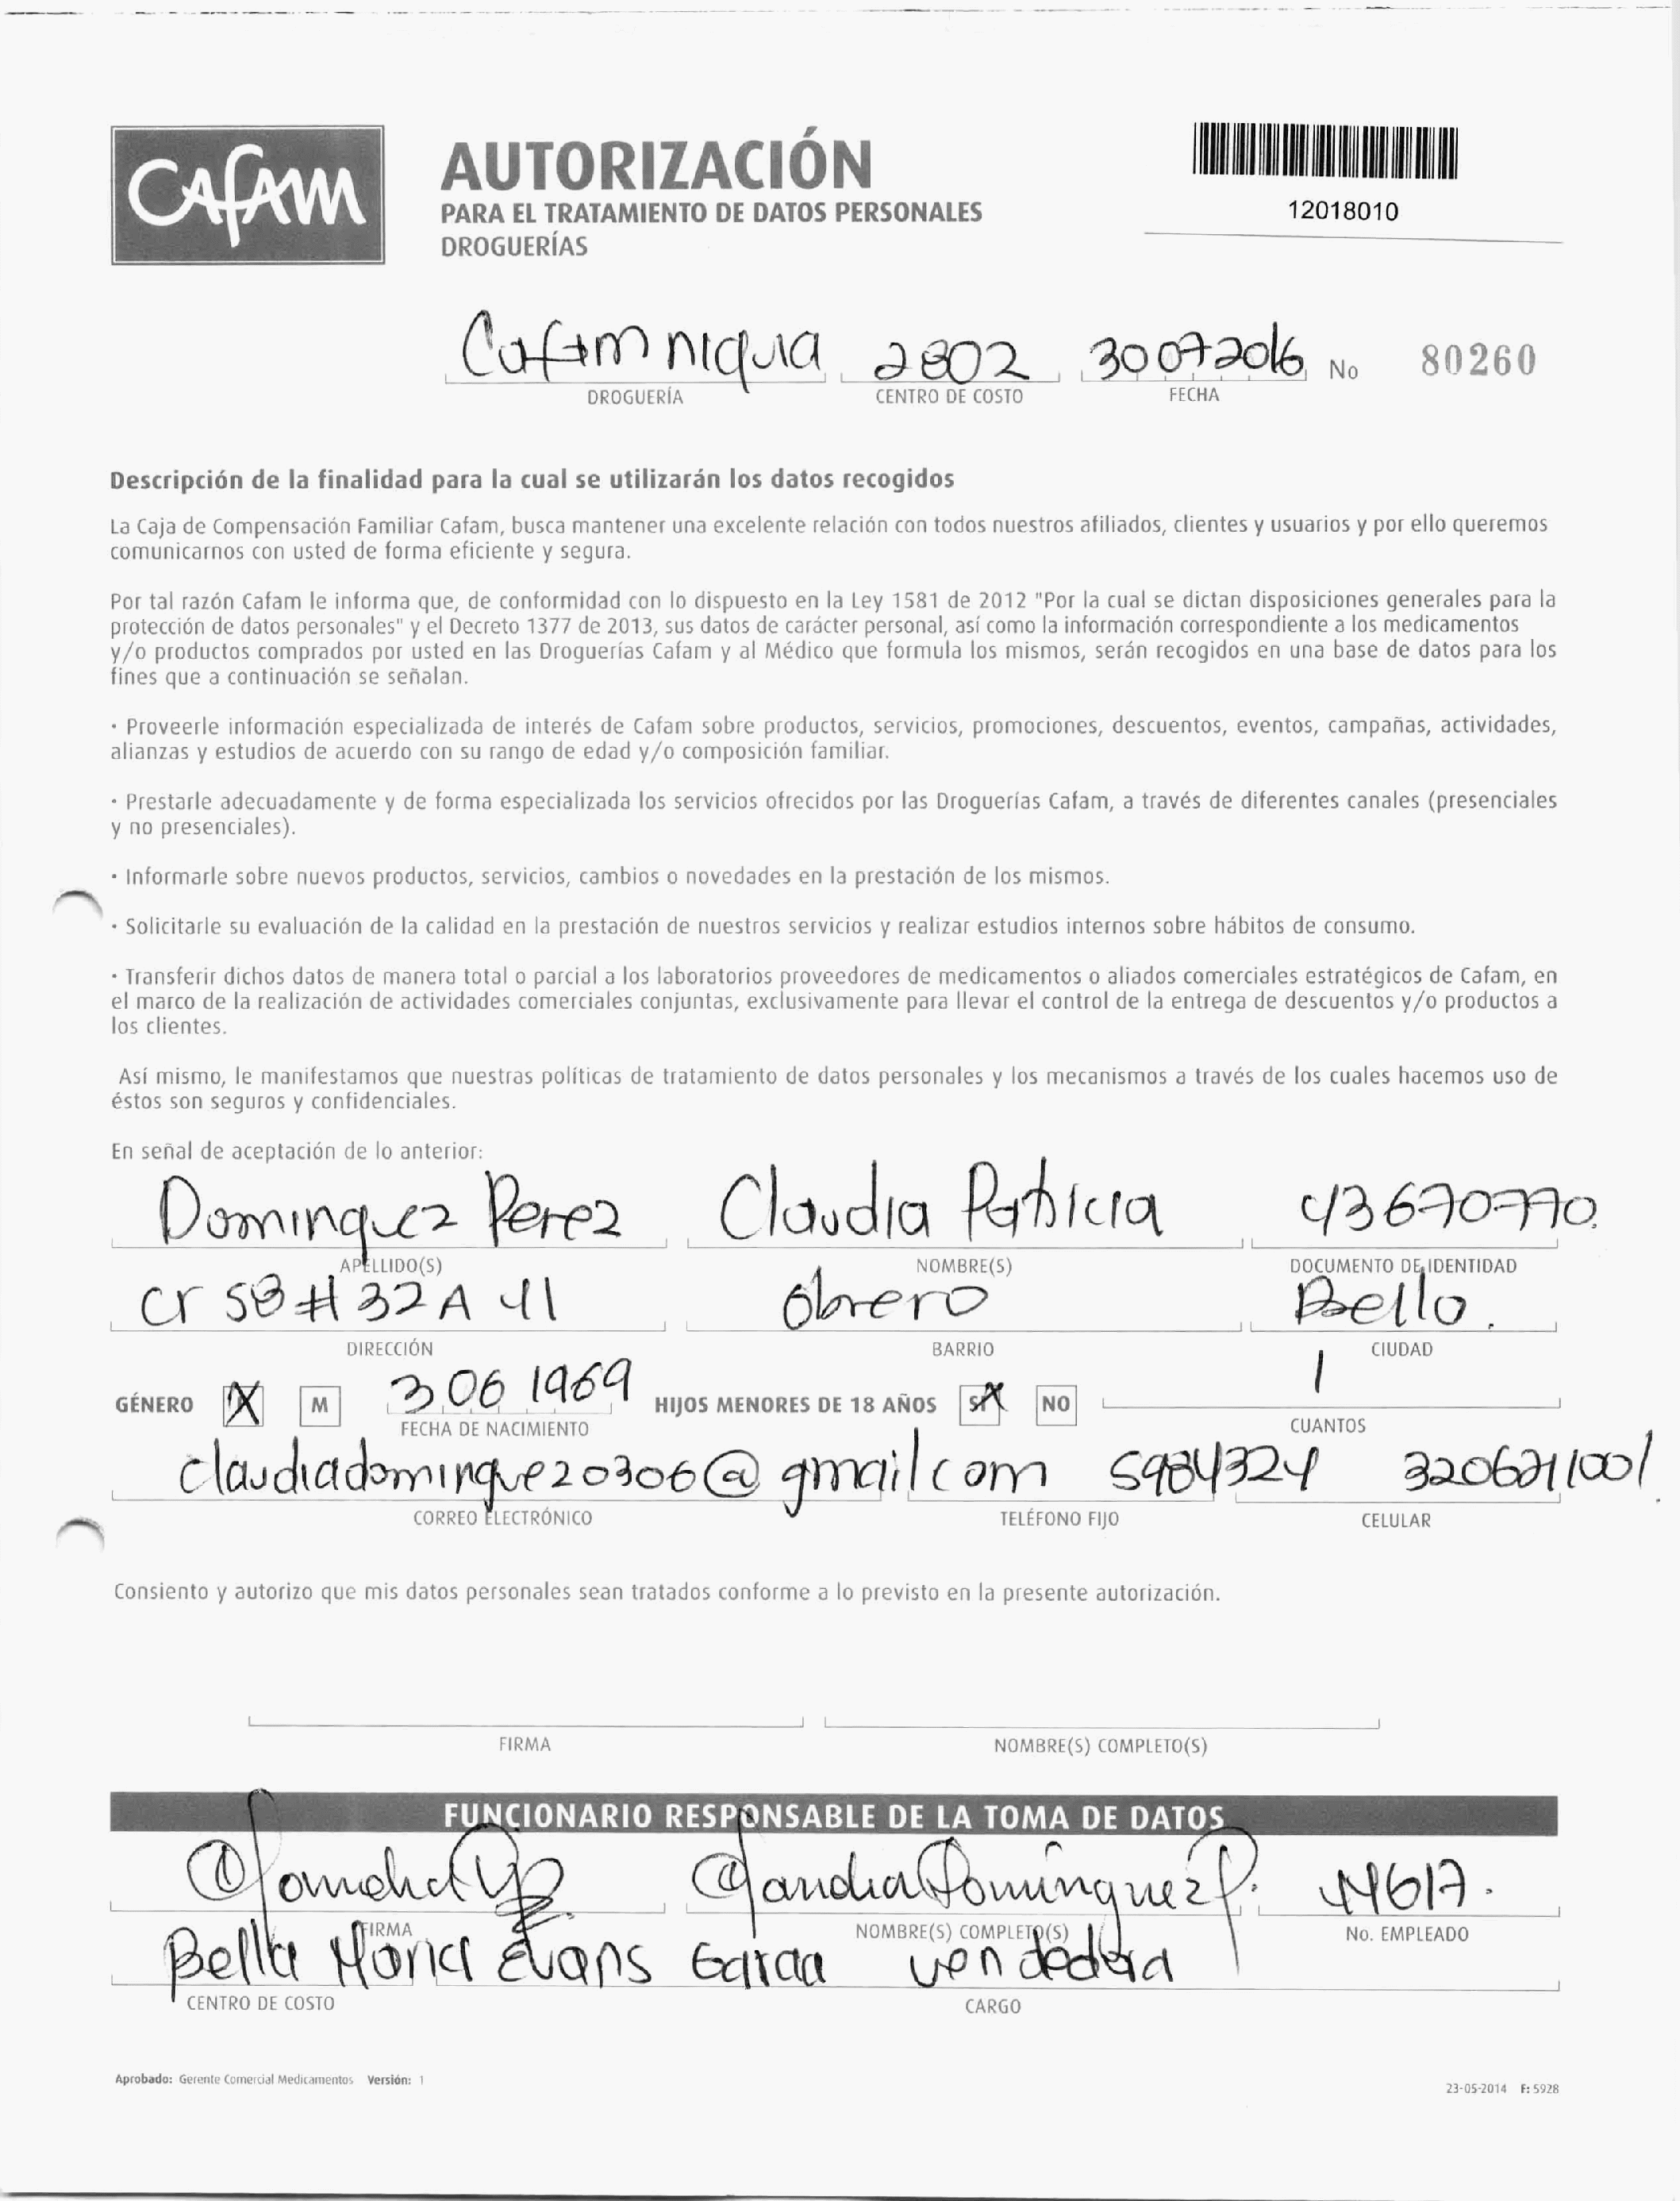 CAFAM
AUTORIZACIÓN
PARA EL TRATAMIENTO DE DATOS PERSONALES
DROGUERÍAS
12018010
Cafam niquia 2802 30072016 No 80260
DROGUERÍA CENTRO DE COSTO FECHA
Descripción de la finalidad para la cual se utilizarán los datos recogidos
La Caja de Compensación Familiar Cafam, busca mantener una excelente relación con todos nuestros afiliados, clientes y usuarios y por ello queremos
comunicarnos con usted de forma eficiente y segura.
Por tal razón Cafam le informa que, de conformidad con lo dispuesto en la Ley 1581 de 2012 "Por la cual se dictan disposiciones generales para la
protección de datos personales" y el Decreto 1377 de 2013, sus datos de carácter personal, así como la información correspondiente a los medicamentos
y/o productos comprados por usted en las Droguerías Cafam y al Médico que formula los mismos, serán recogidos en una base de datos para los
fines que a continuación se señalan.
· Proveerle información especializada de interés de Cafam sobre productos, servicios, promociones, descuentos, eventos, campañas, actividades,
alianzas y estudios de acuerdo con su rango de edad y/o composición familiar.
· Prestarle adecuadamente y de forma especializada los servicios ofrecidos por las Droguerías Cafam, a través de diferentes canales (presenciales
y no presenciales).
· Informarle sobre nuevos productos, servicios, cambios o novedades en la prestación de los mismos.
· Solicitarle su evaluación de la calidad en la prestación de nuestros servicios y realizar estudios internos sobre hábitos de consumo.
· Transferir dichos datos de manera total o parcial a los laboratorios proveedores de medicamentos o aliados comerciales estratégicos de Cafam, en
el marco de la realización de actividades comerciales conjuntas, exclusivamente para llevar el control de la entrega de descuentos y/o productos a
los clientes.
Así mismo, le manifestamos que nuestras políticas de tratamiento de datos personales y los mecanismos a través de los cuales hacemos uso de
éstos son seguros y confidenciales.
En señal de aceptación de lo anterior:
Dominguez Perez Claudia Patricia 43670770.
APELLIDO(S) NOMBRE(S) DOCUMENTO DE IDENTIDAD
cr 58 # 32A 41 Obrero Bello.
DIRECCIÓN BARRIO CIUDAD
GÉNERO X M 3 06 1969 HIJOS MENORES DE 18 AÑOS SI X NO 1
FECHA DE NACIMIENTO CUANTOS
claudiadominguez0306@gmail com 5984324 3206211001
CORREO ELECTRÓNICO TELÉFONO FIJO CELULAR
Consiento y autorizo que mis datos personales sean tratados conforme a lo previsto en la presente autorización.
FIRMA NOMBRE(S) COMPLETO(S)
FUNCIONARIO RESPONSABLE DE LA TOMA DE DATOS
Claudia Dominguez P. 44617.
FIRMA NOMBRE(S) COMPLETO(S) No. EMPLEADO
Bella Maria Evans Garcia vendedora
CENTRO DE COSTO CARGO
Aprobado: Gerente Comercial Medicamentos Versión: 1
23-05-2014 F: 5928